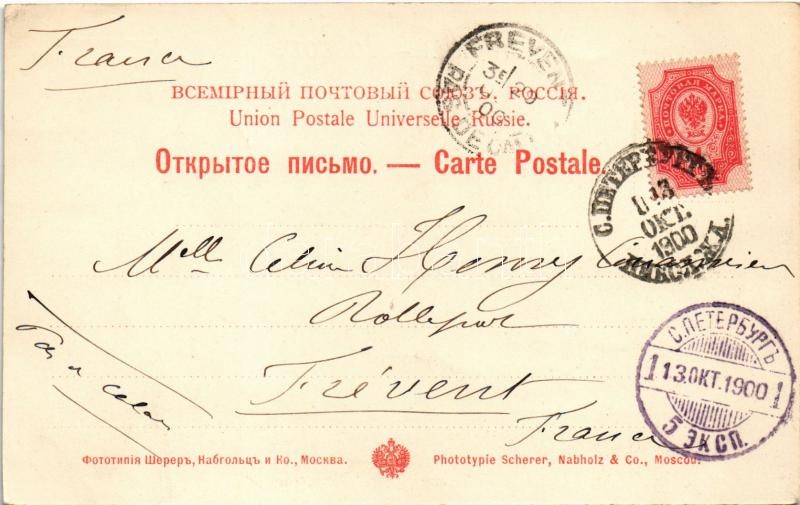 France
FREVENT
PAS DE CALAIS
ВСЕМІРНЫЙ ПОЧТОВЫЙ СОЮЗЪ. РОССІЯ.
Union Postale Universelle Russie.
ПОЧТОВАЯ МАРКА
Открытое письмо. — Carte Postale.
С.ПЕТЕРБУРГЪ
13
ОКТ.
1900
Mlle Henry
Frévent
France
С.ПЕТЕРБУРГЪ
1 13.ОКТ.1900 1
5 ЭКСП.
Фототипія Шереръ, Набгольцъ и Ко., Москва.
Phototypie Scherer, Nabholz & Co., Moscou.